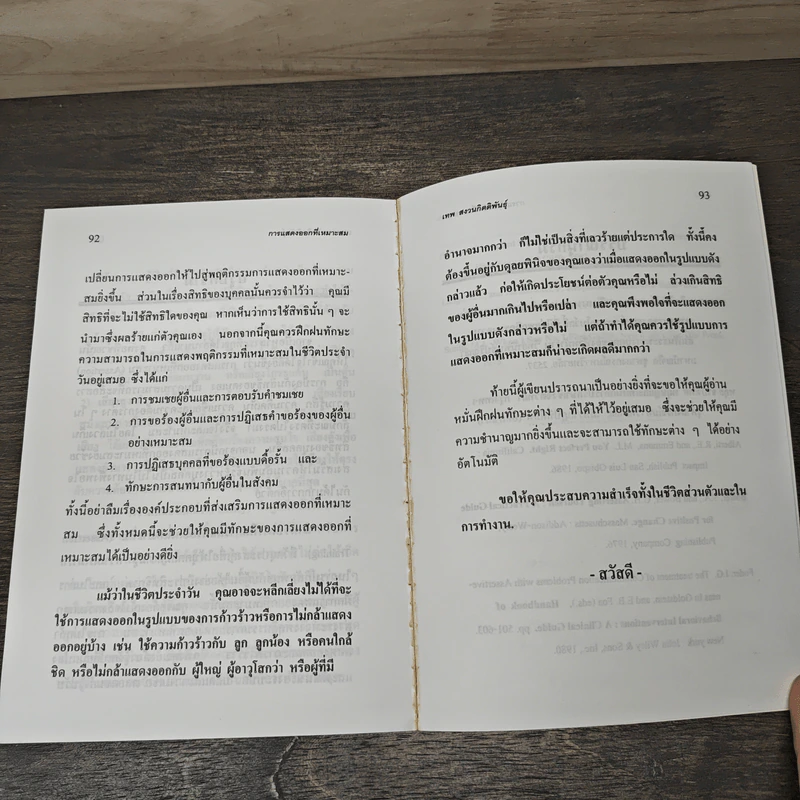 92
การแสดงออกที่เหมาะสม
เปลี่ยนการแสดงออกให้ไปสู่พฤติกรรมการแสดงออกที่เหมาะ-
สมยิ่งขึ้น ส่วนในเรื่องสิทธิของบุคคลนั้นควรจำไว้ว่า คุณมี
สิทธิที่จะไม่ใช้สิทธิของคุณ หากเห็นว่าการใช้สิทธินั้น ๆ จะ
นำมาซึ่งผลร้ายแก่ตัวคุณเอง นอกจากนี้คุณควรฝึกฝนทักษะ
ความสามารถในการแสดงพฤติกรรมที่เหมาะสมในชีวิตประจำ
วันอยู่เสมอ ซึ่งได้แก่
1. การชมเชยผู้อื่นและการตอบรับคำชมเชย
2. การขอร้องผู้อื่นและการปฏิเสธคำขอร้องของผู้อื่น
อย่างเหมาะสม
3. การปฏิเสธบุคคลที่ขอร้องแบบดื้อรั้น และ
4. ทักษะการสนทนากับผู้อื่นในสังคม
ทั้งนี้อย่าลืมเรื่ององค์ประกอบที่ส่งเสริมการแสดงออกที่เหมาะ
สม ซึ่งทั้งหมดนี้จะช่วยให้คุณมีทักษะของการแสดงออกที่
เหมาะสมได้เป็นอย่างดียิ่ง
แม้ว่าในชีวิตประจำวัน คุณอาจจะหลีกเลี่ยงไม่ได้ที่จะ
ใช้การแสดงออกในรูปแบบของการก้าวร้าวหรือการไม่กล้าแสดง
ออกอยู่บ้าง เช่น ใช้ความก้าวร้าวกับ ลูก ลูกน้อง หรือคนใกล้
ชิด หรือไม่กล้าแสดงออกกับ ผู้ใหญ่ ผู้อาวุโสกว่า หรือผู้ที่มี
เทพ สงวนกิตติพันธุ์
93
อำนาจมากกว่า ก็ไม่ใช่เป็นสิ่งที่เลวร้ายแต่ประการใด ทั้งนี้คง
ต้องขึ้นอยู่กับดุลยพินิจของคุณเองว่าเมื่อแสดงออกในรูปแบบดัง
กล่าวแล้ว ก่อให้เกิดประโยชน์ต่อตัวคุณหรือไม่ ล่วงเกินสิทธิ
ของผู้อื่นมากเกินไปหรือเปล่า และคุณพึงพอใจที่จะแสดงออก
ในรูปแบบดังกล่าวหรือไม่ แต่ถ้าทำได้คุณควรใช้รูปแบบการ
แสดงออกที่เหมาะสมก็น่าจะเกิดผลดีมากกว่า
ท้ายนี้ผู้เขียนปรารถนาเป็นอย่างยิ่งที่จะขอให้คุณผู้อ่าน
หมั่นฝึกฝนทักษะต่าง ๆ ที่ได้ให้ไว้อยู่เสมอ ซึ่งจะช่วยให้คุณมี
ความชำนาญมากยิ่งขึ้นและจะสามารถใช้ทักษะต่าง ๆ ได้อย่าง
อัตโนมัติ
ขอให้คุณประสบความสำเร็จทั้งในชีวิตส่วนตัวและใน
การทำงาน.
- สวัสดี -